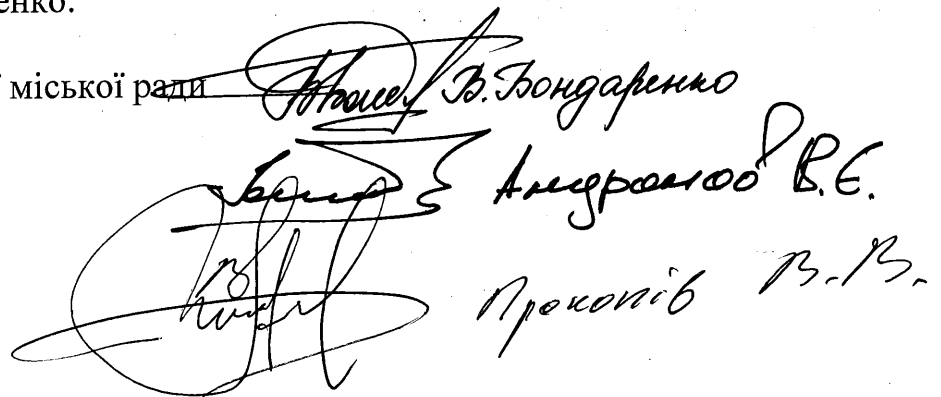 енко.
міської ради В. Бондаренко
Андронов В.Є.
Прокопів В.В.